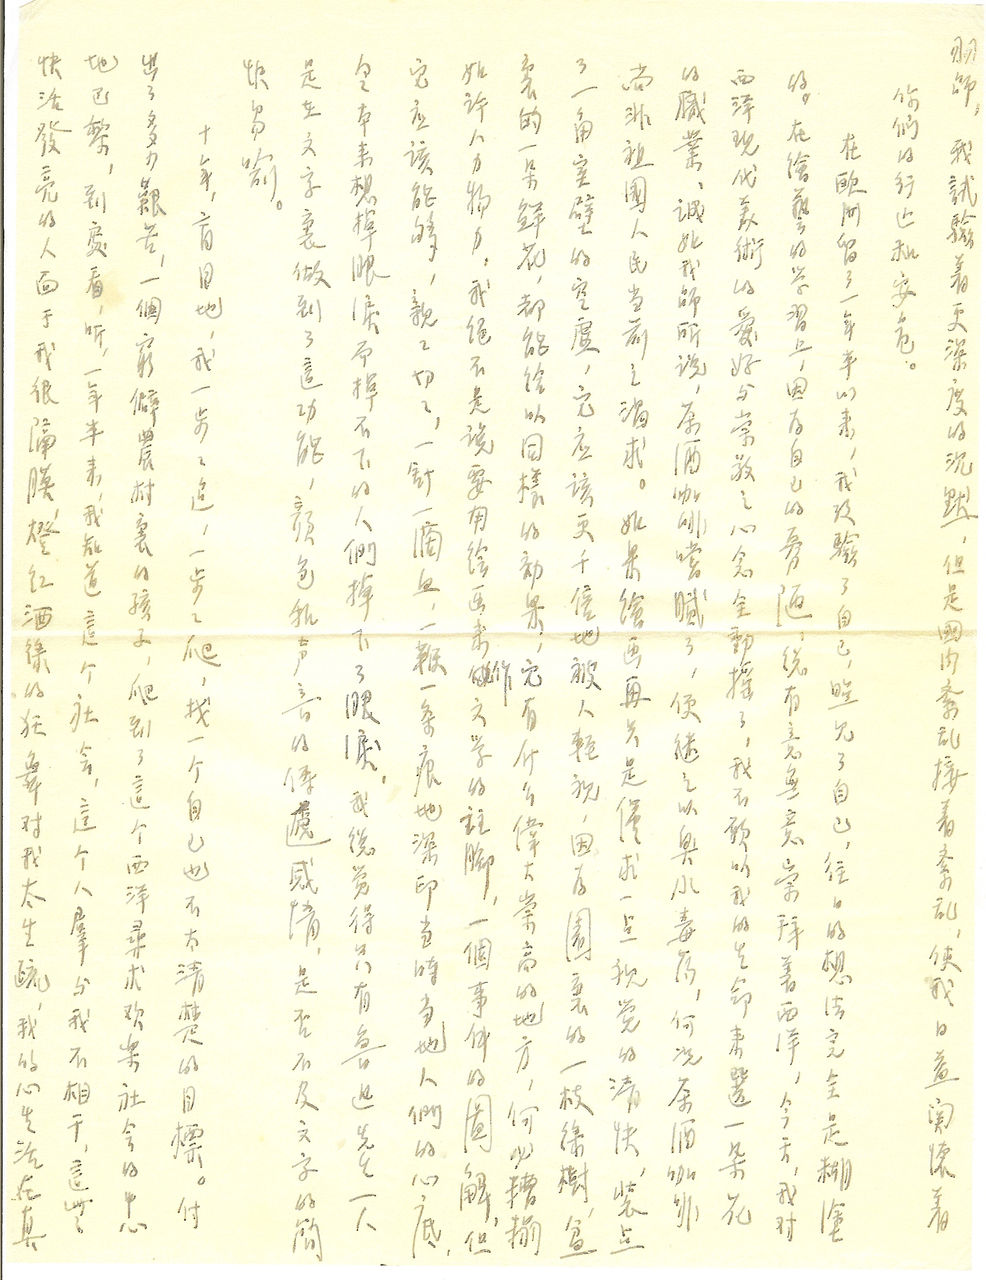 羽師，我試驗着更深度的沉默，但是國内紊乱接着紊乱，使我日益関懷着
你們的行止和安危。
在歐洲留了一年半以来，我攷驗了自己，照見了自己，往日的想法完全是糊塗
的。在繪藝的学習上，因為自己的孤陋，總有意無意崇拜着西洋，今天，我对
西洋現代美術的愛好与崇敬之心念全動摇了，我不願以我的生命来選一朵花
的職業，誠如我師所說，茶酒咖啡嚐腻了，便繼之以臭水毒药，何况茶酒咖啡
尚非祖國人民当前之渴求。如果繪画再只是僅求一点視覺的清快，装点
了一角室壁的空虛，它应該更千倍地被人輕視，因為園裏的一枝綠樹，盆
裏的一朵鮮花，都能给以同樣的効果，它有什么偉大崇高的地方，何必糟塌
如許人力物力。我絕不是說要用绘画来作文学的註脚，一個事件的圖解，但
它应該能够，親親切切，一針一滴血，一鞭一条痕地深印当時当地人們的心底，
令本来想掉眼淚而掉不下的人們掉下了眼淚。我總覺得只有魯迅先生一人
是在文字裏做到了這功能，顔色和声音的傳遞感情，是否不及文字的簡
快易喻。
十年，盲目地，我一步步追，一步步爬，找一个自己也不太清楚的目標。付
出了多少艱苦，一個窮僻農村裏的孩子，爬到了這个西洋尋求欢樂社会的中心
地巴黎，到處看，听，一年半来，我知道這个社会，這个人羣与我不相干，這些
快活發亮的人面于我很隔膜，燈紅酒綠的狂舞对我太生疏，我的心生活在真